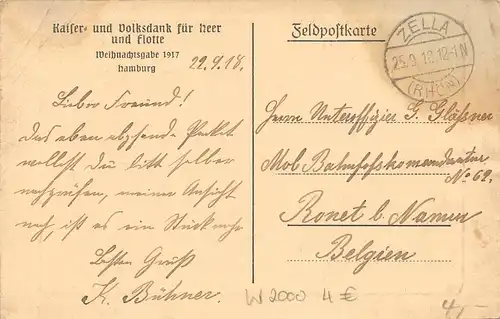 Kaiser- und Volksdank für Heer
und Flotte
Weihnachtsgabe 1917
Hamburg
22.9.18.
Lieber Freund!
Das eben abgehende Packet
wollest du bitte selber
nachprüfen, meiner Ansicht
nach, ist es ein Stück mehr
Besten Gruß
K. Bühner.
Feldpostkarte
ZELLA
25.9.18.12-1N
(RHÖN)
Herrn Unteroffizier G. Gläßner
Mob. Bahnhofskommandantur
No 62.
Ronet b. Namur
Belgien
W2000 4 €
4,-